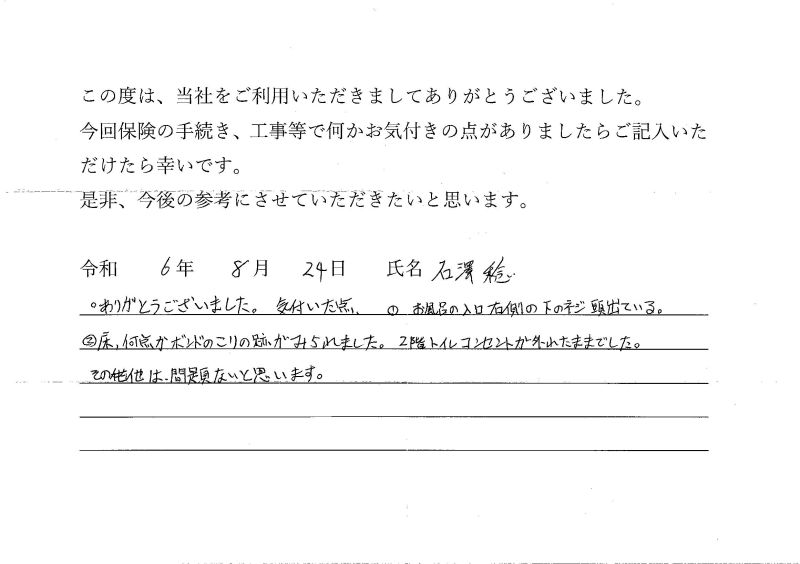 この度は、当社をご利用いただきましてありがとうございました。
今回保険の手続き、工事等で何かお気付きの点がありましたらご記入いた
だけたら幸いです。
是非、今後の参考にさせていただきたいと思います。
令和 6年 8月 24日 氏名 石澤 稔
○ありがとうございました。 気付いた点、 ① お風呂の入口右側の下のネジ頭出ている。
②床、何点かボンドのこりの跡がみられました。 2階トイレコンセントが外れたままでした。
その他は、問題ないと思います。